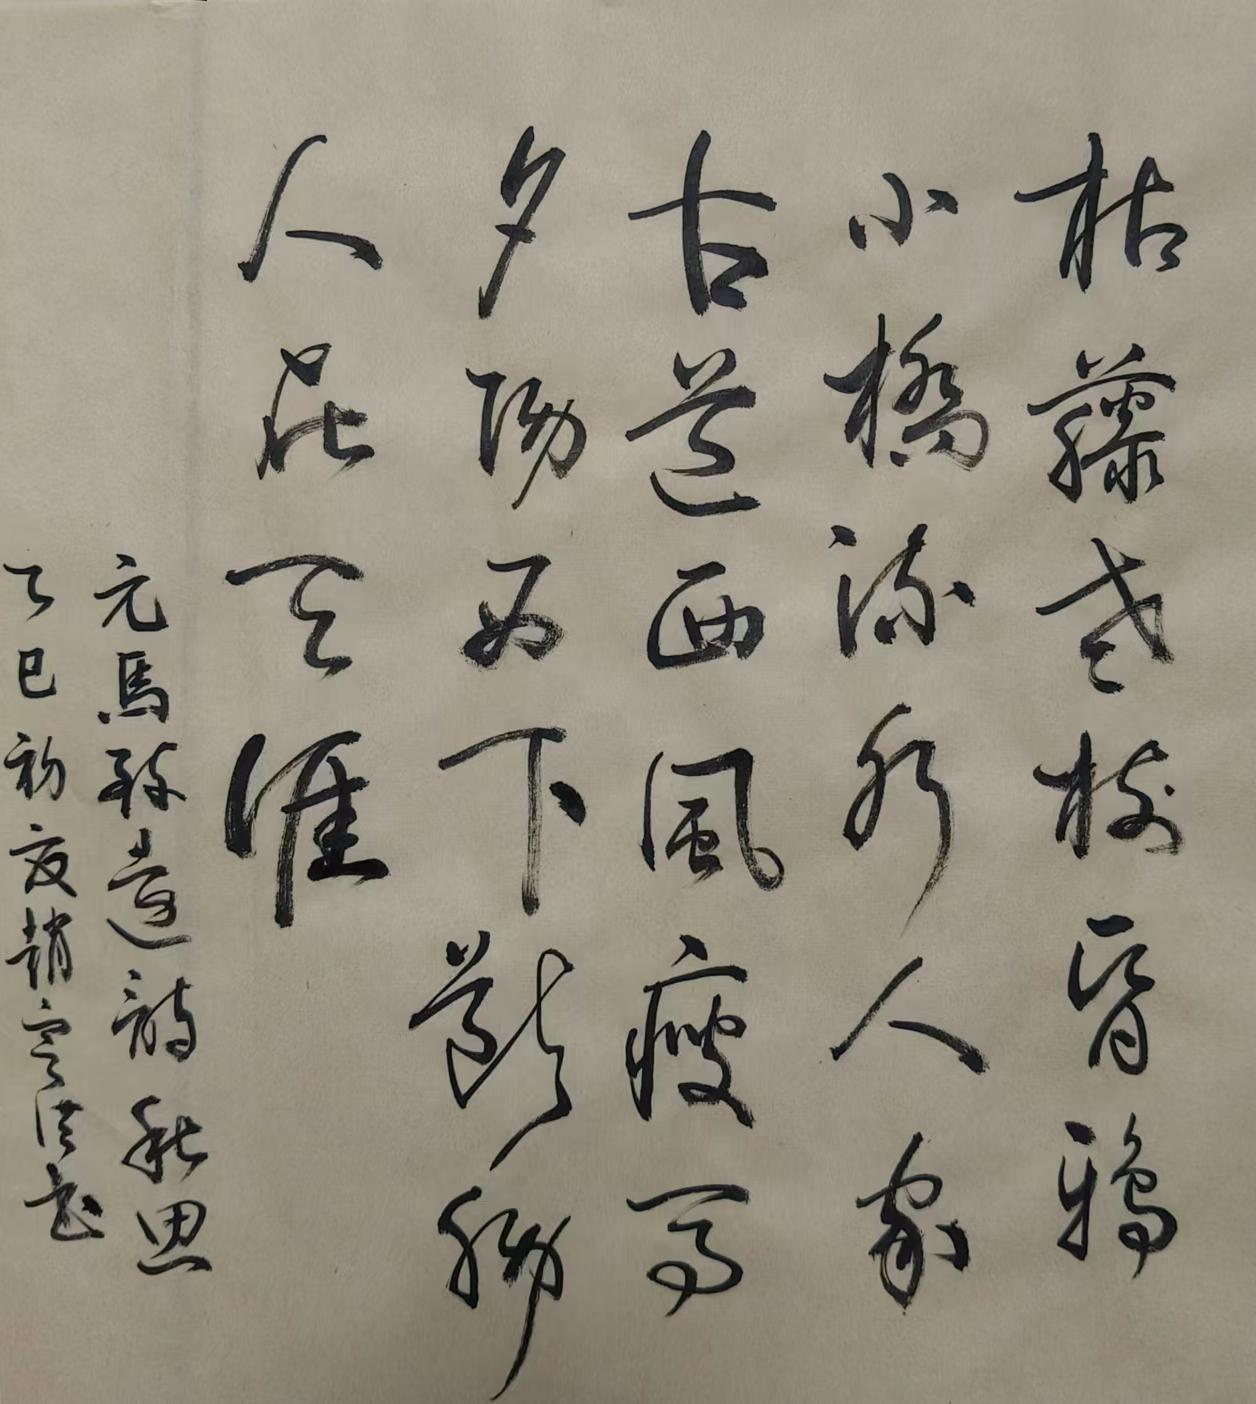 枯藤老樹昏鴉
小橋流水人家
古道西風瘦馬
夕陽西下斷腸
人在天涯
元馬致遠詩秋思
乙巳初夏趙寧洪書